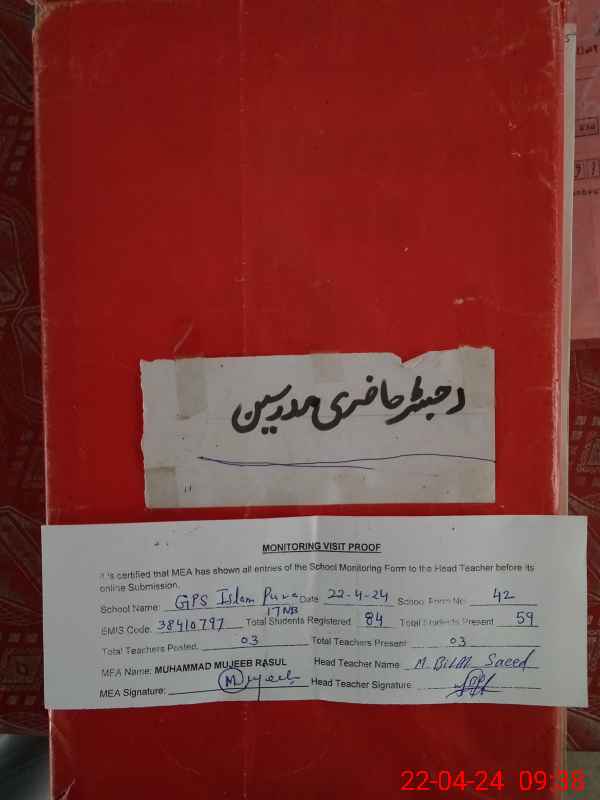 رجسٹر حاضری مدرسین
MONITORING VISIT PROOF
It is certified that MEA has shown all entries of the School Monitoring Form to the Head Teacher before its
online Submission.
School Name: GPS Islam Pura 17NB Date 22-4-24 School Form No. 42
EMIS Code. 38410797 Total Students Registered 84 Total Students Present 59
Total Teachers Posted. 03 Total Teachers Present 03
MEA Name: MUHAMMAD MUJEEB RASUL Head Teacher Name: M. Bilal Saeed
MEA Signature: Mujeeb Head Teacher Signature
22-04-24 09:38